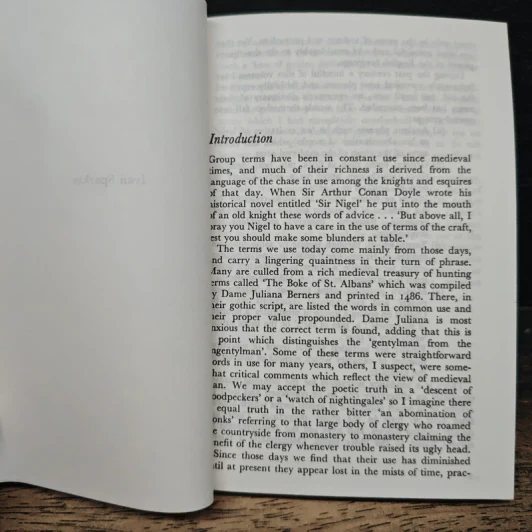 Introduction
Group terms have been in constant use since medieval
times, and much of their richness is derived from the
language of the chase in use among the knights and esquires
of that day. When Sir Arthur Conan Doyle wrote his
historical novel entitled 'Sir Nigel' he put into the mouth
of an old knight these words of advice . . . 'But above all, I
pray you Nigel to have a care in the use of terms of the craft,
lest you should make some blunders at table.'
The terms we use today come mainly from those days,
and carry a lingering quaintness in their turn of phrase.
Many are culled from a rich medieval treasury of hunting
erms called 'The Boke of St. Albans' which was compiled
y Dame Juliana Berners and printed in 1486. There, in
heir gothic script, are listed the words in common use and
heir proper value propounded. Dame Juliana is most
nxious that the correct term is found, adding that this is
point which distinguishes the 'gentylman from the
ngentylman'. Some of these terms were straightforward
ords in use for many years, others, I suspect, were some-
hat critical comments which reflect the view of medieval
an. We may accept the poetic truth in a 'descent of
oodpeckers' or a 'watch of nightingales' so I imagine there
equal truth in the rather bitter 'an abomination of
onks' referring to that large body of clergy who roamed
e countryside from monastery to monastery claiming the
nefit of the clergy whenever trouble raised its ugly head.
Since those days we find that their use has diminished
til at present they appear lost in the mists of time, prac-